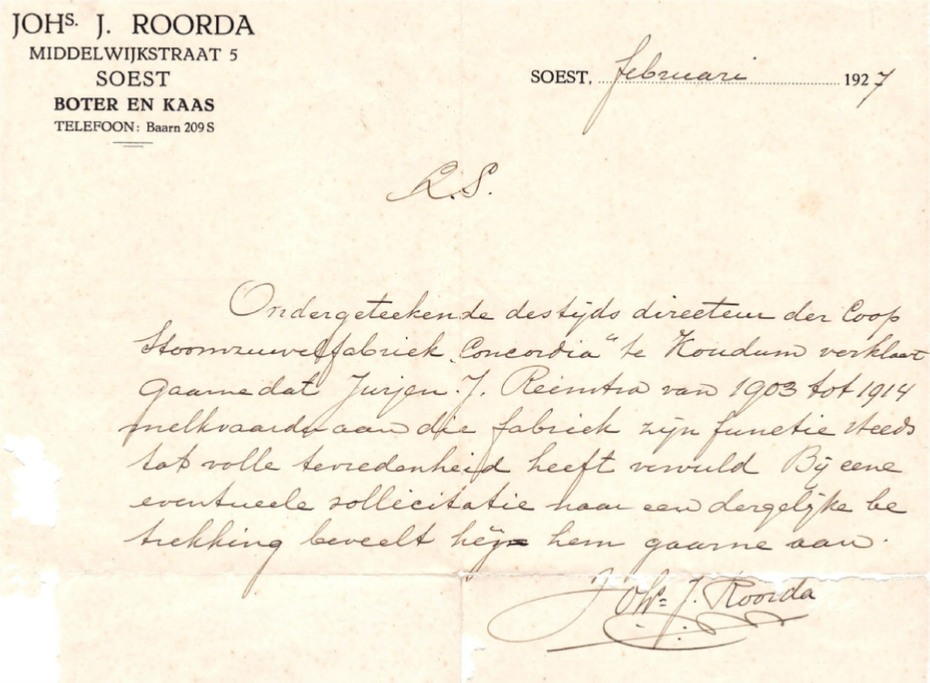 JOHS. J. ROORDA
MIDDELWIJKSTRAAT 5
SOEST
BOTER EN KAAS
TELEFOON: Baarn 209 S
SOEST, februari 1927
L.S.
Ondergeteekende destijds directeur der Coop
Stoomzuivelfabriek „Concordia" te Koudum verklaart
gaarne dat Jurjen J. Reinstra van 1903 tot 1914
melkvaarder aan die fabriek zijn functie steeds
tot volle tevredenheid heeft vervuld Bij eene
eventueele sollicitatie naar een dergelijke be
trekking beveelt hij hem gaarne aan.
Johs. J. Roorda